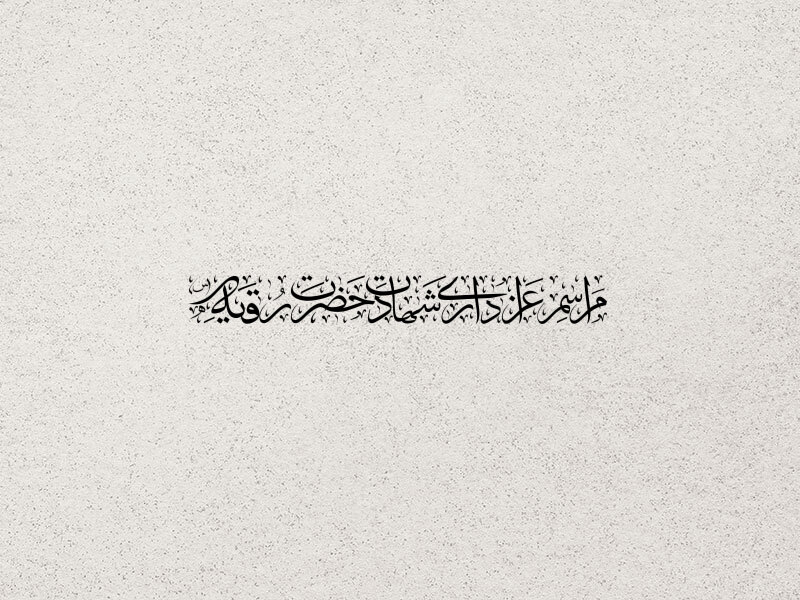 مراسم عزاداری شهادت حضرت رقیه (س)